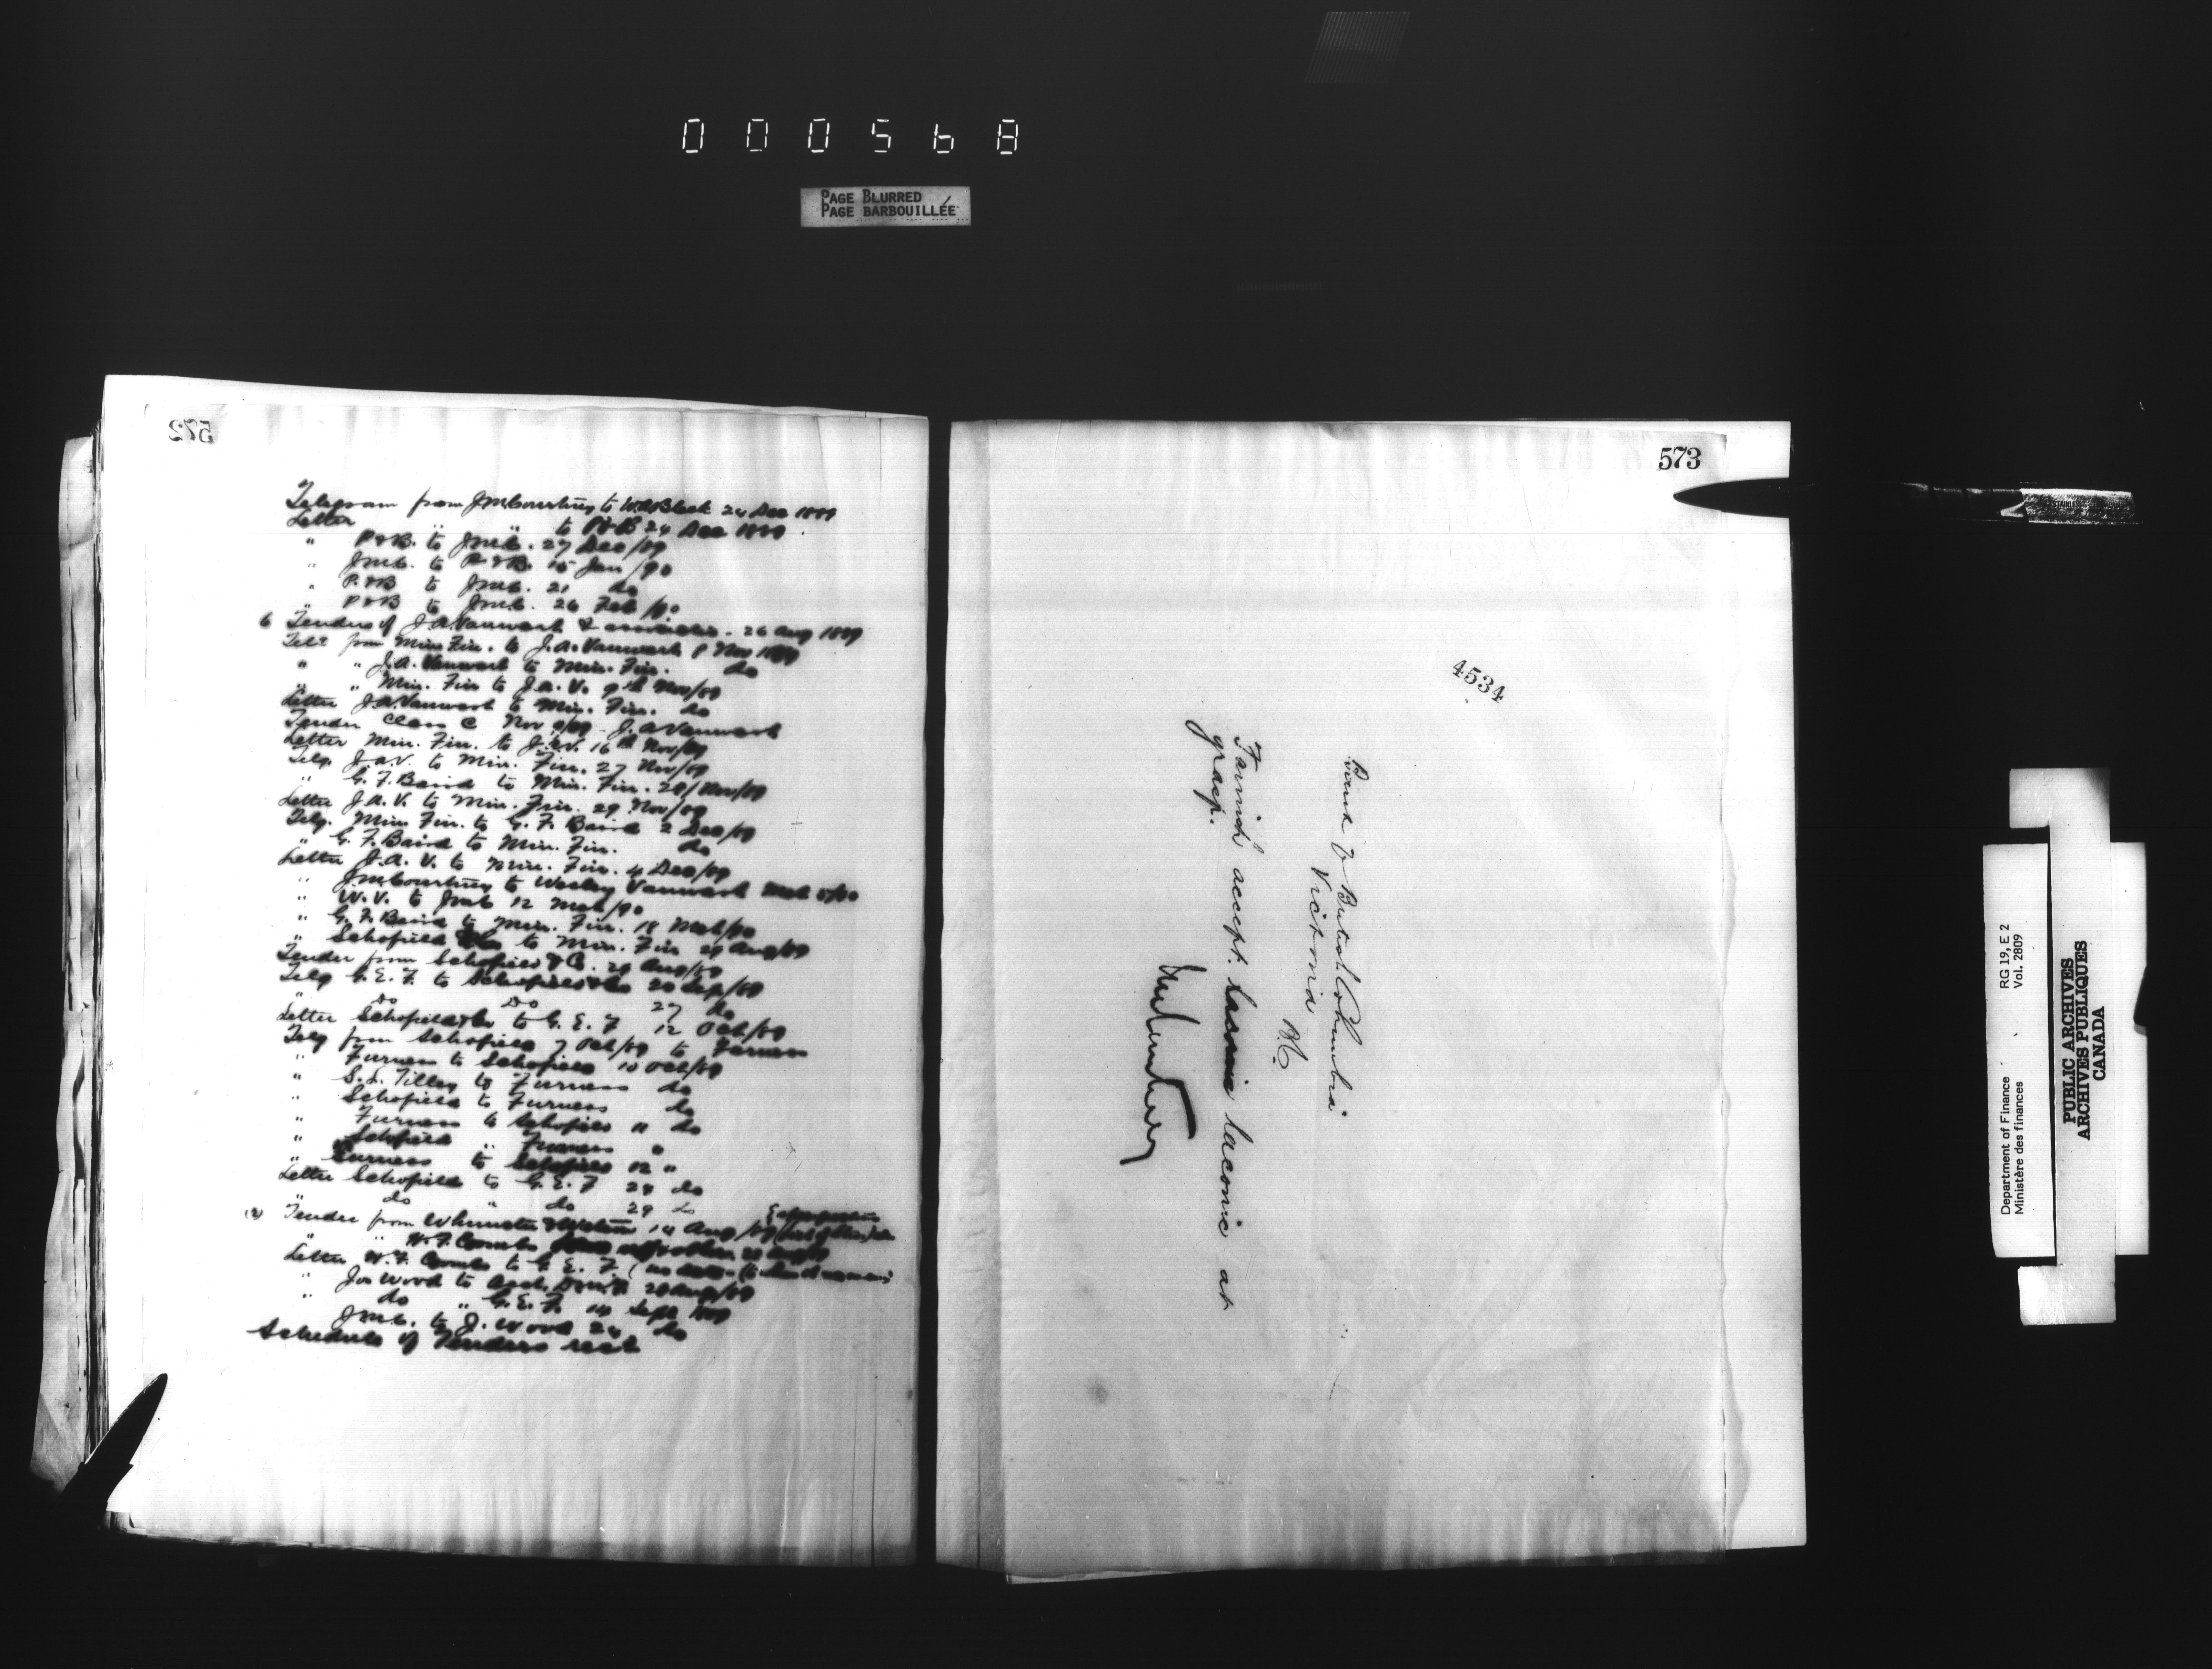 000568
PAGE BLURRED
PAGE BARBOUILLÉE
572
Telegram from J M Courtney to W A Black 24 Dec 1889
Letter " " to P&B 24 Dec 1889
" P&B. to J.M.C. 27 Dec/89
" J.M.C. to P&B. 15 Jan/90
" P&B to J.M.C. 21 do
" P&B to J.M.C. 26 Feb/90
6 Tenders of J.A. Vanwart & associates. 26 Aug 1889
Telm from Min. Fin. to J.A. Vanwart 8 Nov 1889
" " J.A. Vanwart to Min. Fin. do
" " Min. Fin to J.A.V. 9th Nov/89
Letter J.A. Vanwart to Min. Fin. do
Tender Class C Nov 9/89 J.A Vanwart
Letter Min. Fin. to J.A.V. 16th Nov/89
Telg. J.A.V. to Min. Fin. 27 Nov/89
" G.F. Baird to Min. Fin. 28/Nov/89
Letter J.A.V. to Min. Fin. 29 Nov/89
Telg. Min Fin. to G.F. Baird 2 Dec/89
" G.F. Baird to Min. Fin. do
Letter J.A.V. to Min. Fin. 4 Dec/89
" J M Courtney to Wesley Vanwart Mch 5/90
" W.V. to JMC 12 Mch/90
" G.F. Baird to Min. Fin. 18 Mch/90
" Schofield & Co to Min. Fin 29 Aug/89
Tender from Schofield & Co. 29 Aug/89
Telg G.E.F. to Schofield & Co 20 Sep/89
" Do Do 27 do
Letter Schofield & Co to G.E.F 12 Oct/89
Telg from Schofield 7 Oct/89 to Furness
" Furness to Schofield 10 Oct/89
" S.L. Tilley to Furness do
" Schofield to Furness do
" Furness to Schofield 11 do
" Schofield " Furness "
" Furness to Schofield 12 "
Letter Schofield to G.E.F 28 do
" do " do 29 do
Tender from 14 Aug/89
" " W.F. Combs
Letter W.F. Combs to G.E.F.
" Jos Wood to 28 Aug/89
" do " G.E.F. 14 Sept 1889
J.M.C. to J. Wood 24 do
Schedule of Tenders recd
573
4534
Bank of British Columbia
Victoria
B.C.
Farnish accept laconic at
grasp.
J M Courtney
Department of Finance RG 19, E 2
Ministère des finances Vol. 2809
PUBLIC ARCHIVES
ARCHIVES PUBLIQUES
CANADA